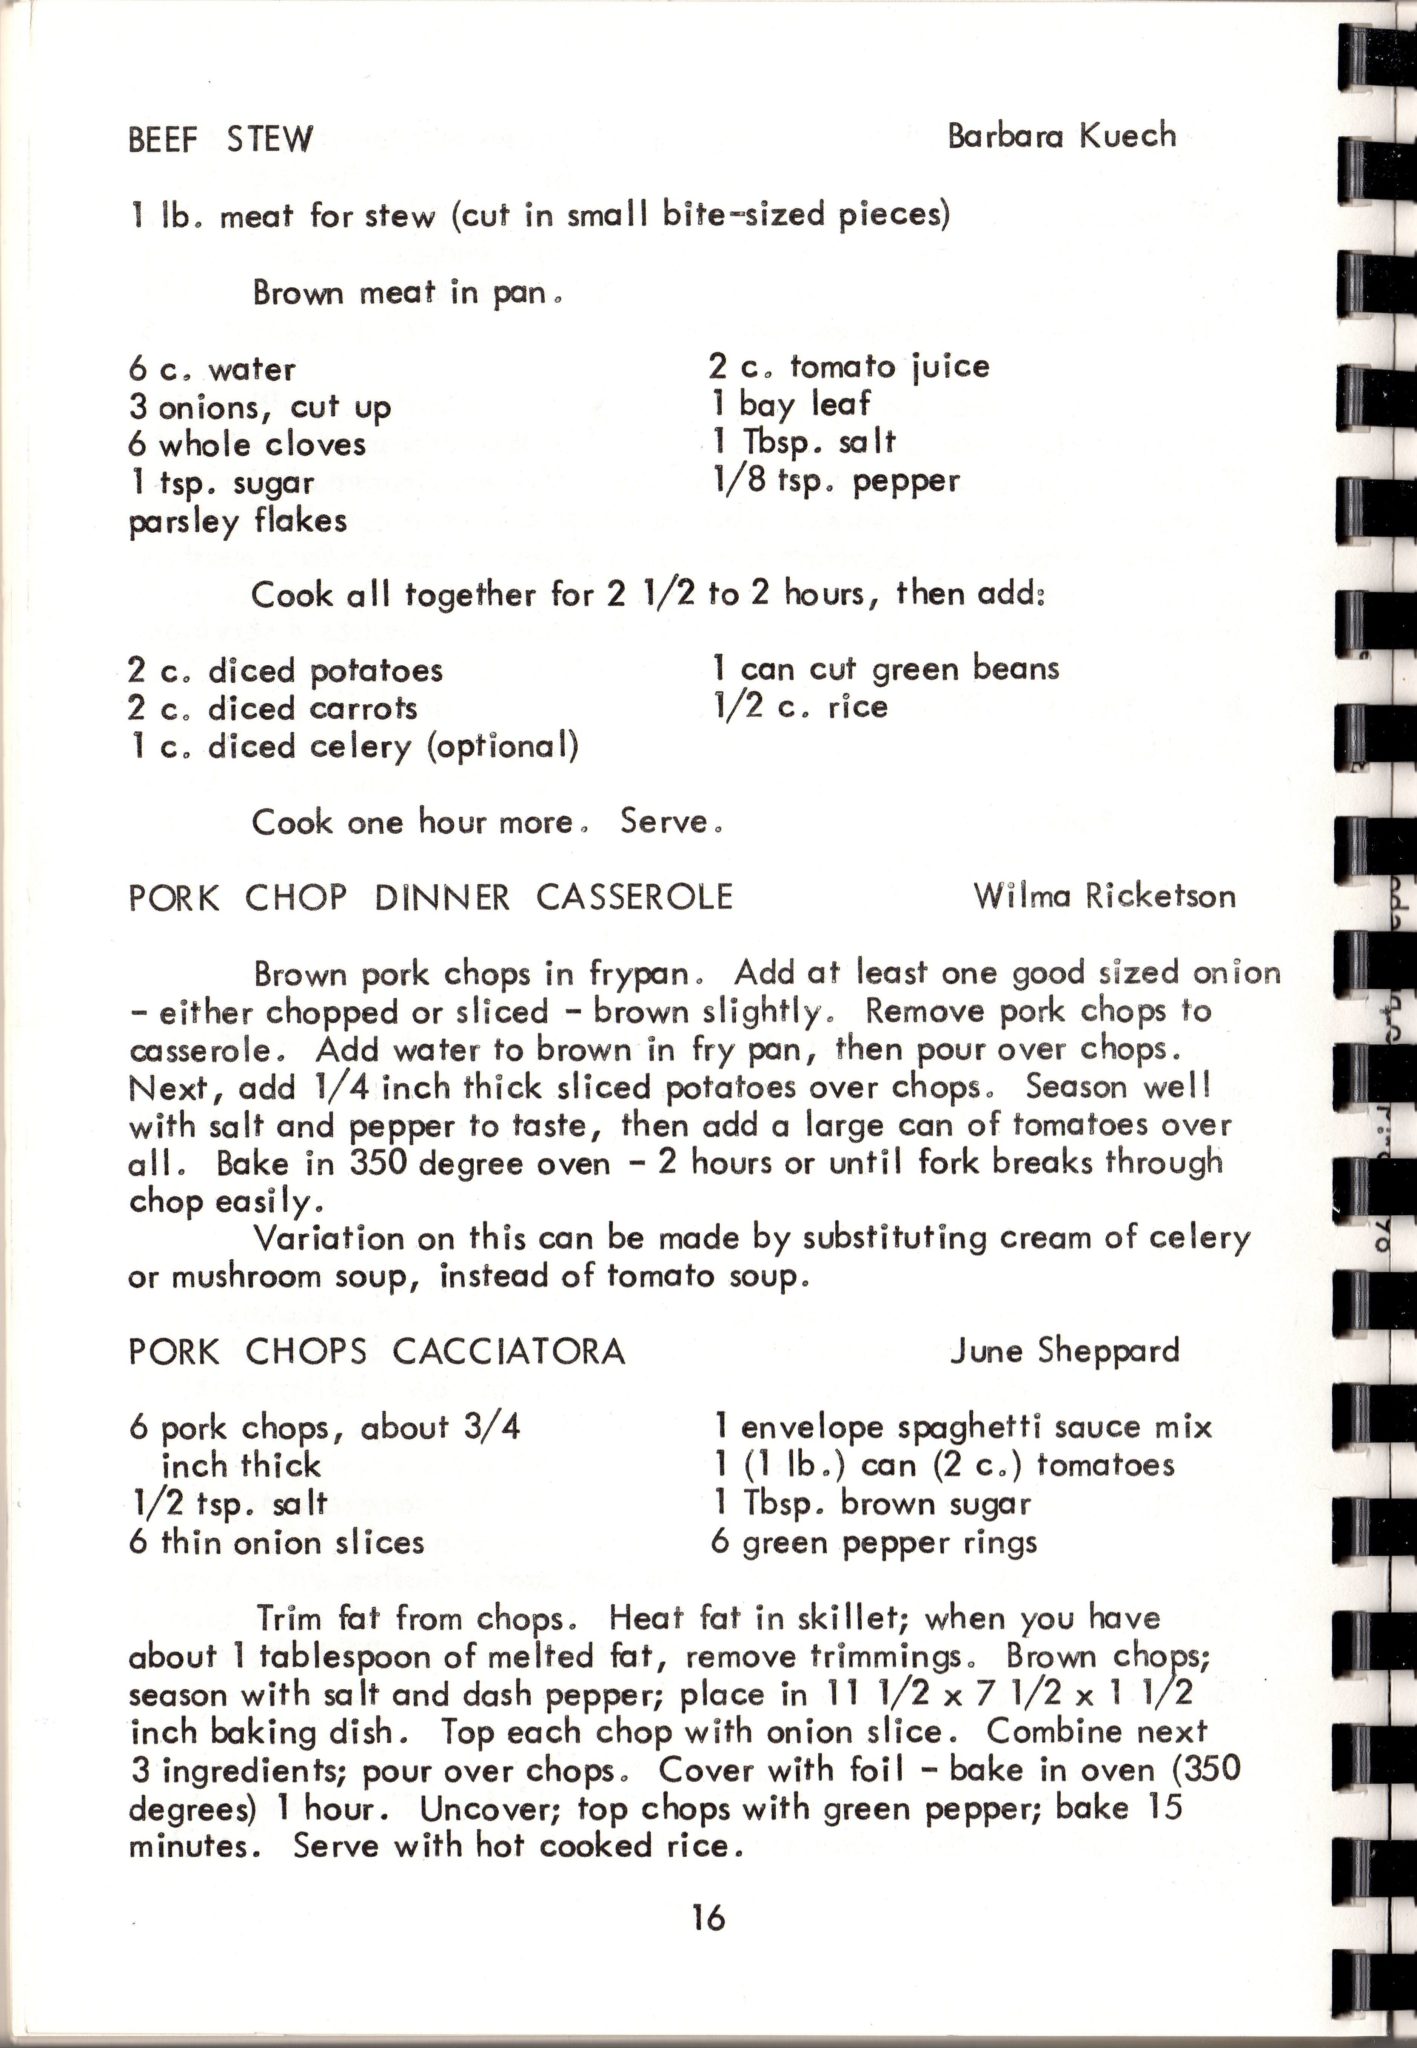 BEEF STEW Barbara Kuech
1 lb. meat for stew (cut in small bite-sized pieces)
Brown meat in pan.
6 c. water 2 c. tomato juice
3 onions, cut up 1 bay leaf
6 whole cloves 1 Tbsp. salt
1 tsp. sugar 1/8 tsp. pepper
parsley flakes
Cook all together for 2 1/2 to 2 hours, then add:
2 c. diced potatoes 1 can cut green beans
2 c. diced carrots 1/2 c. rice
1 c. diced celery (optional)
Cook one hour more. Serve.
PORK CHOP DINNER CASSEROLE Wilma Ricketson
Brown pork chops in frypan. Add at least one good sized onion
- either chopped or sliced - brown slightly. Remove pork chops to
casserole. Add water to brown in fry pan, then pour over chops.
Next, add 1/4 inch thick sliced potatoes over chops. Season well
with salt and pepper to taste, then add a large can of tomatoes over
all. Bake in 350 degree oven - 2 hours or until fork breaks through
chop easily.
Variation on this can be made by substituting cream of celery
or mushroom soup, instead of tomato soup.
PORK CHOPS CACCIATORA June Sheppard
6 pork chops, about 3/4 1 envelope spaghetti sauce mix
inch thick 1 (1 lb.) can (2 c.) tomatoes
1/2 tsp. salt 1 Tbsp. brown sugar
6 thin onion slices 6 green pepper rings
Trim fat from chops. Heat fat in skillet; when you have
about 1 tablespoon of melted fat, remove trimmings. Brown chops;
season with salt and dash pepper; place in 11 1/2 x 7 1/2 x 1 1/2
inch baking dish. Top each chop with onion slice. Combine next
3 ingredients; pour over chops. Cover with foil - bake in oven (350
degrees) 1 hour. Uncover; top chops with green pepper; bake 15
minutes. Serve with hot cooked rice.
16